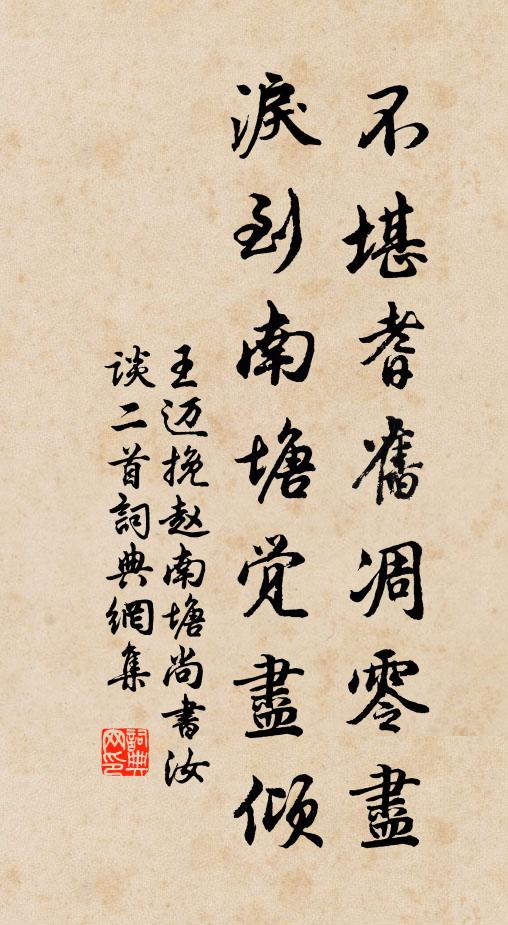 不堪耆舊凋零盡
淚到南塘觉盡倾
王迈挽赵南塘尚書汝
谈二首詞典網集
詞典
网印